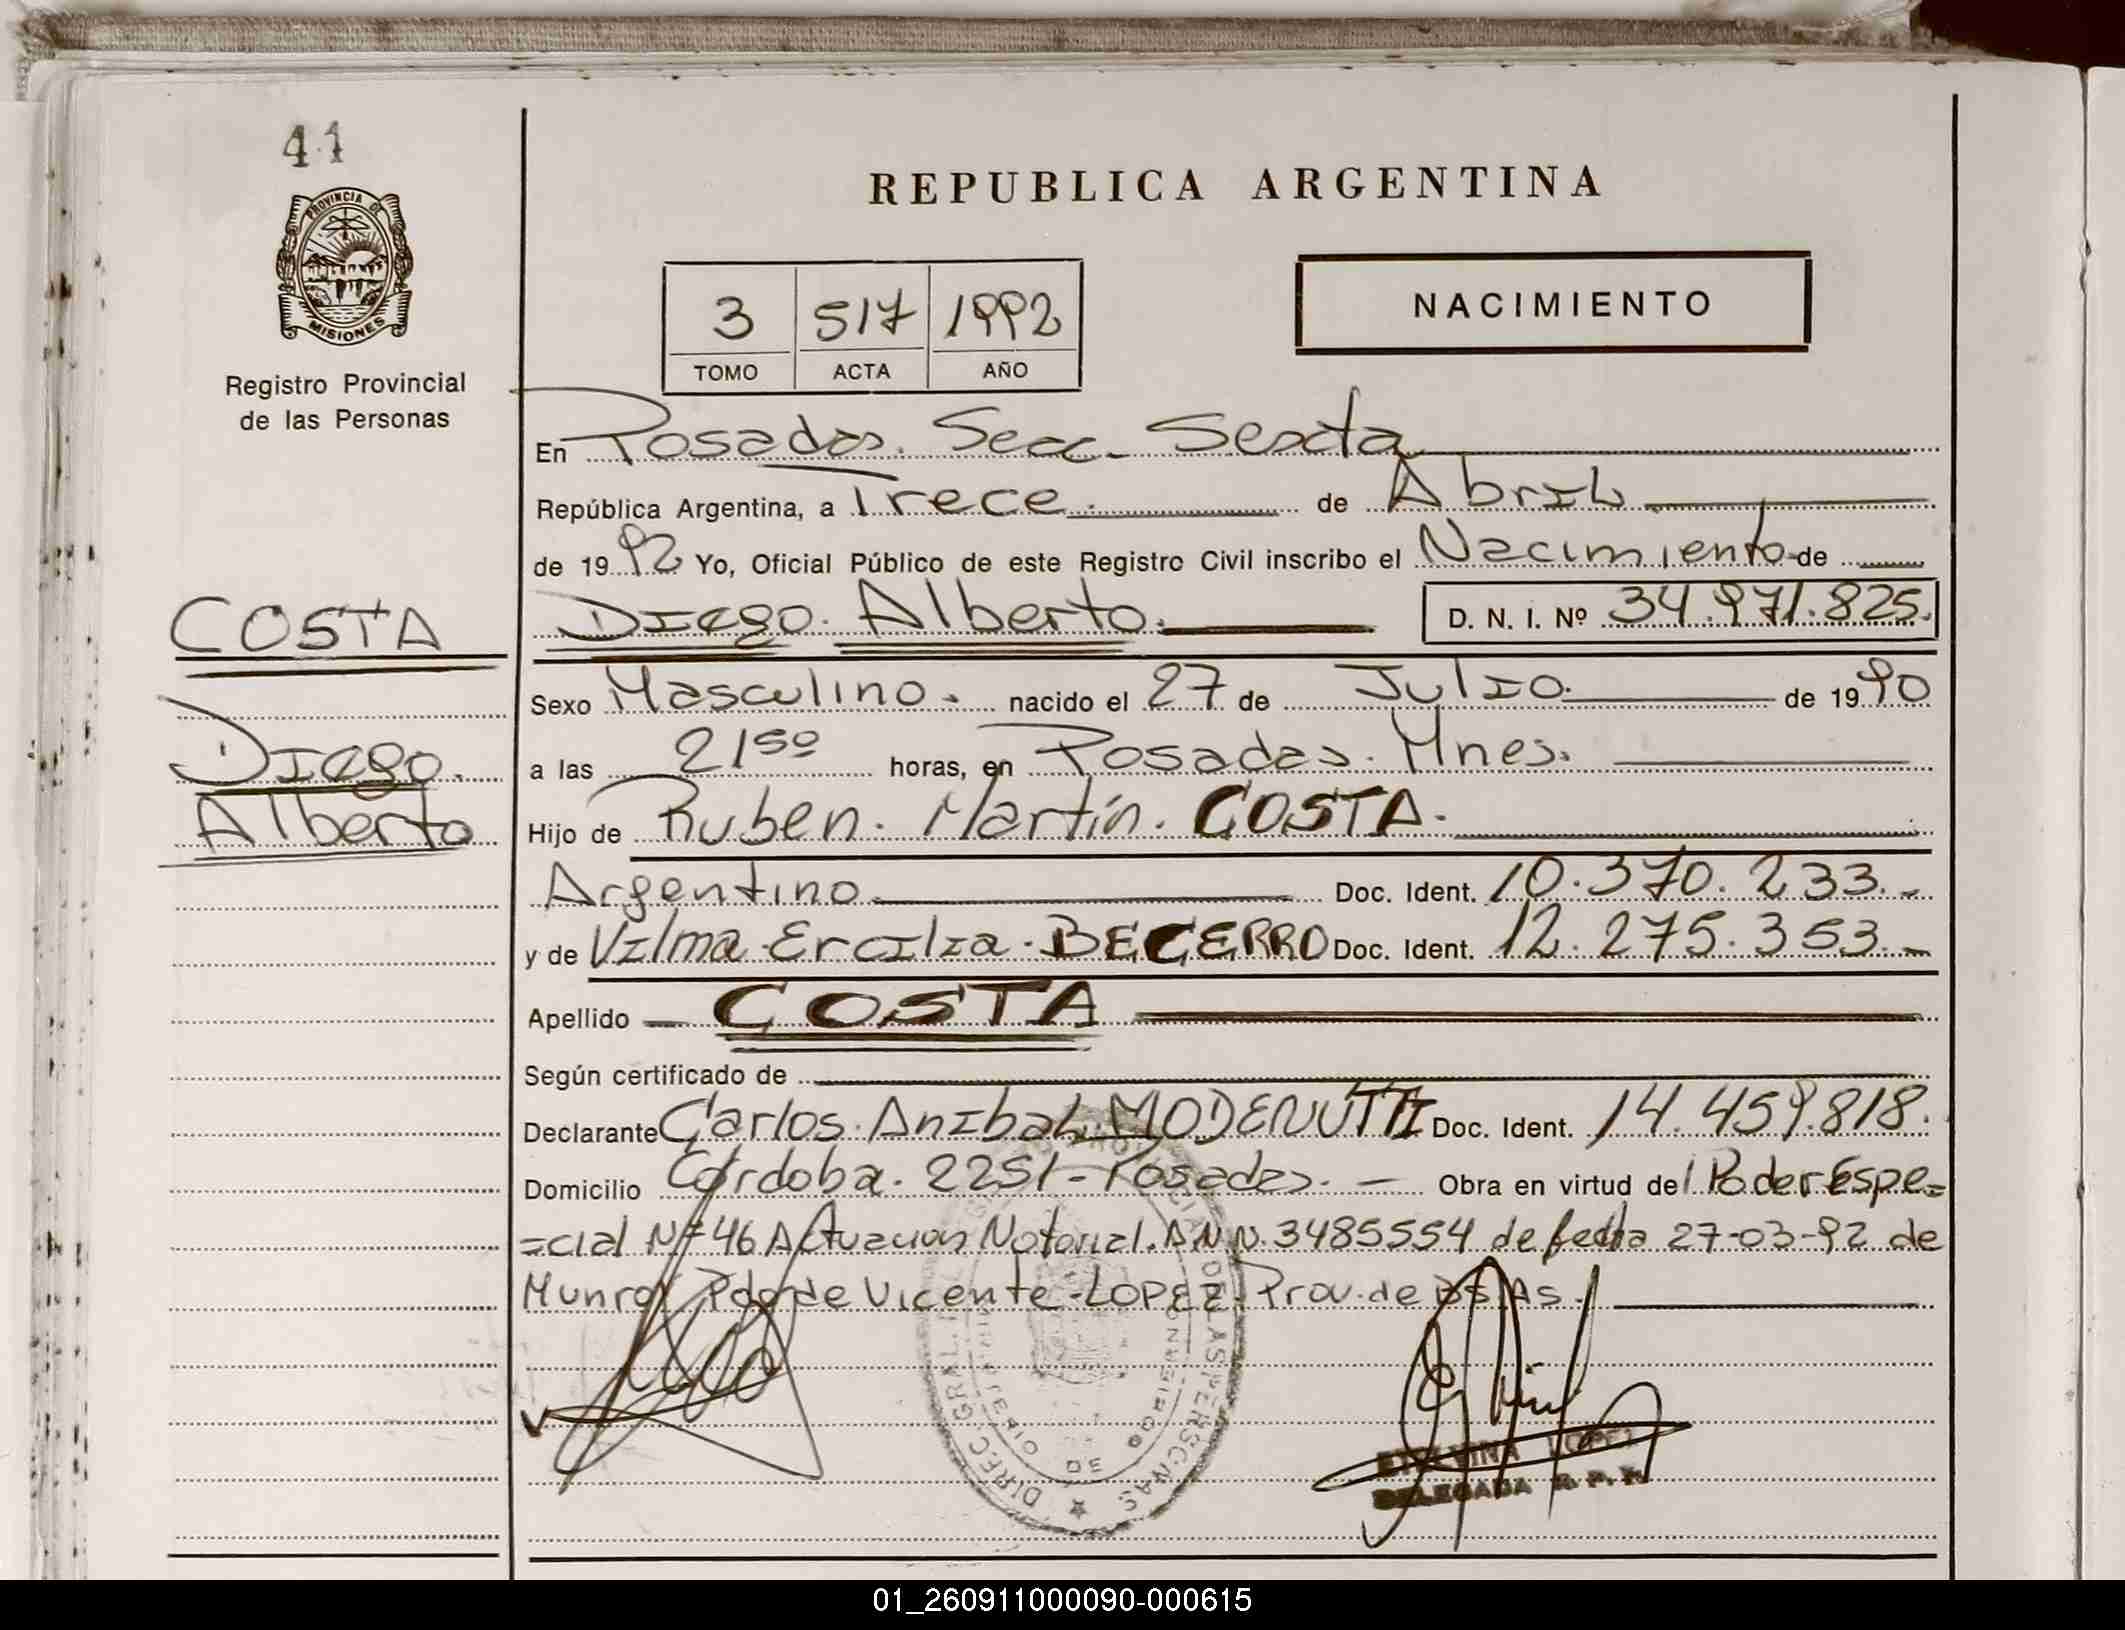 41
PROVINCIA DE
MISIONES
Registro Provincial
de las Personas
COSTA
Diego
Alberto
REPUBLICA ARGENTINA
3 517 1992
TOMO ACTA AÑO
NACIMIENTO
En Posadas. Secc. Sexta
República Argentina, a Trece. de Abril
de 1992 Yo, Oficial Público de este Registro Civil inscribo el Nacimiento de
Diego. Alberto. D. N. I. Nº 34.971.825.
Sexo Masculino. nacido el 27 de Julio. de 1990
a las 2150 horas, en Posadas. Mnes.
Hijo de Ruben. Martín. COSTA.
Argentino Doc. Ident. 10.370.233.-
y de Vilma. Ercilia. BECERRO Doc. Ident. 12.275.353.-
Apellido COSTA
Según certificado de
Declarante Carlos. Anibal. MODENUTTI Doc. Ident. 14.459.818.
Domicilio Córdoba. 2251-Posadas. - Obra en virtud del Poder Espe=
=cial Nº 46 Actuacion Notarial. A.N.N. 3485554 de fecha 27-03-92 de
Munro. Pdo de Vicente-LOPEZ-Prov. de BS. AS.
DIREC. GRAL. DE LAS PERSONAS
LOPEZ
DELEGADA R. P. P.
01_260911000090-000615